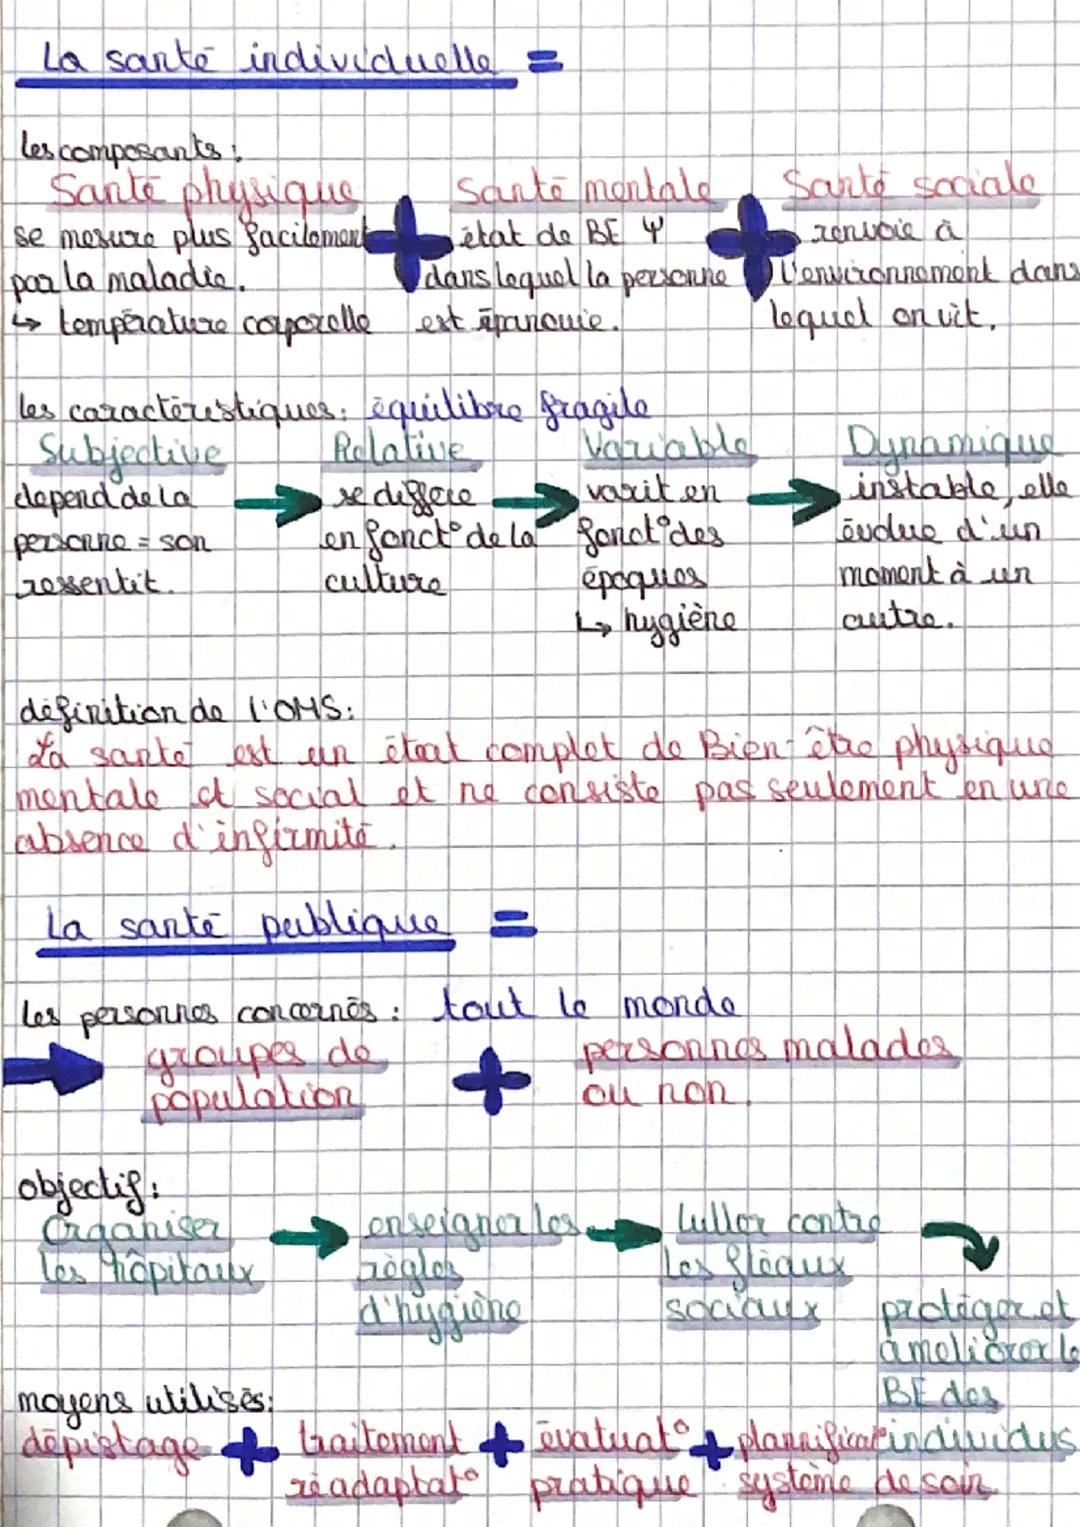 La santé individuelle =
les composants :
Santé physique + Santé mentale + Santé sociale
se mesure plus facilement état de BE Ψ renvoie à
par la maladie. dans lequel la personne l'environnement dans
↳ température corporelle est épanouie. lequel on vit.
les caractéristiques: équilibre fragile
Subjective Relative Variable Dynamique
depend de la → se differe → varit en → instable, elle
personne = son en fonct° de la fonct° des évolue d'un
ressentit. culture époques moment à un
↳ hygiène autre.
définition de l'OMS:
La santé est un état complet de Bien-être physique
mentale et social et ne consiste pas seulement en une
absence d'infirmité.
La santé publique =
les personnes concernés : tout le monde
→ groupes de + personnes malades
population ou non.
objectif:
Organiser → enseigner les → lutter contre
les hôpitaux règles les fléaux
d'hygiène sociaux protéger et
améliorer le
moyens utilisés: BE des
dépistage + traitement + évaluat° + plannificat° individus
réadaptat° pratique système de soin